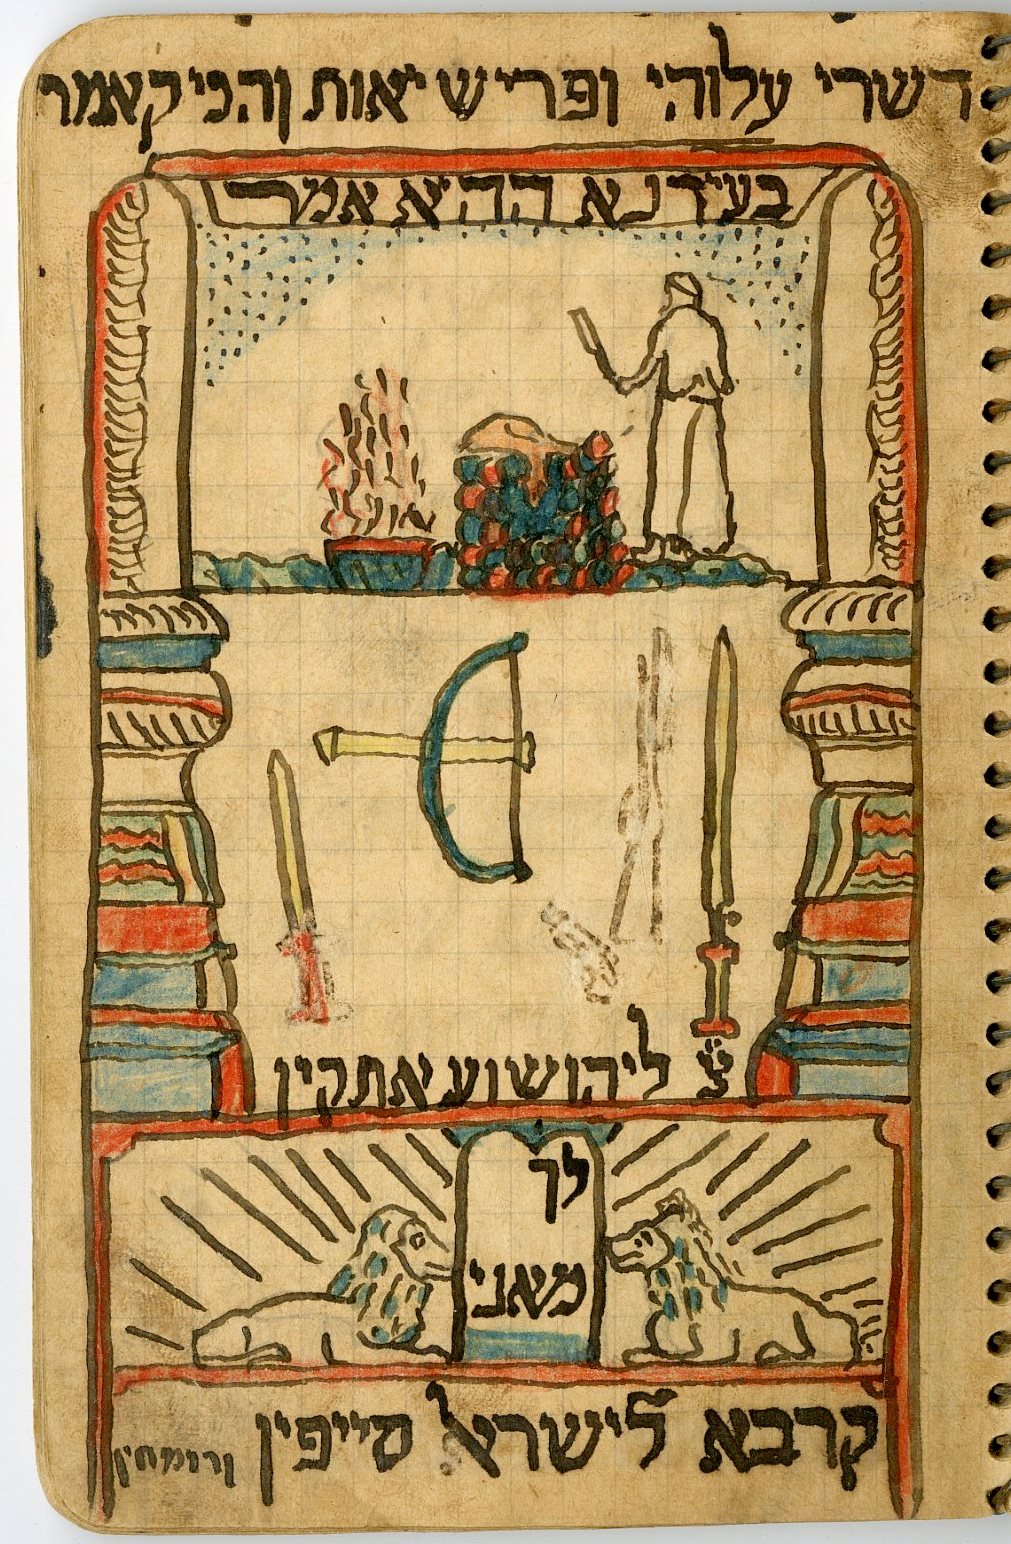 דשרי עלוהי ופריש יאות והכי קאמר
בעידנא ההיא אמר
יי ליהושוע אתקין
לך
מאני
קרבא לישראל סייפין
ורומחין